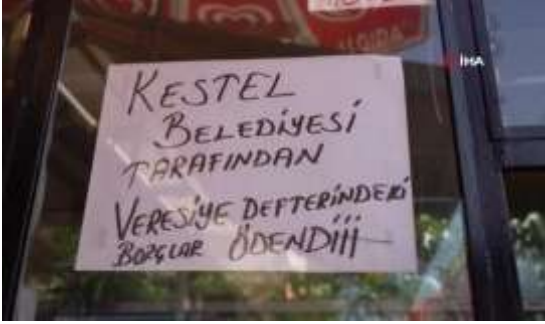 İHA
KESTEL
BELEDİYESİ
TARAFINDAN
VERESİYE DEFTERİNDEKİ
BORÇLAR ÖDENDİİİ